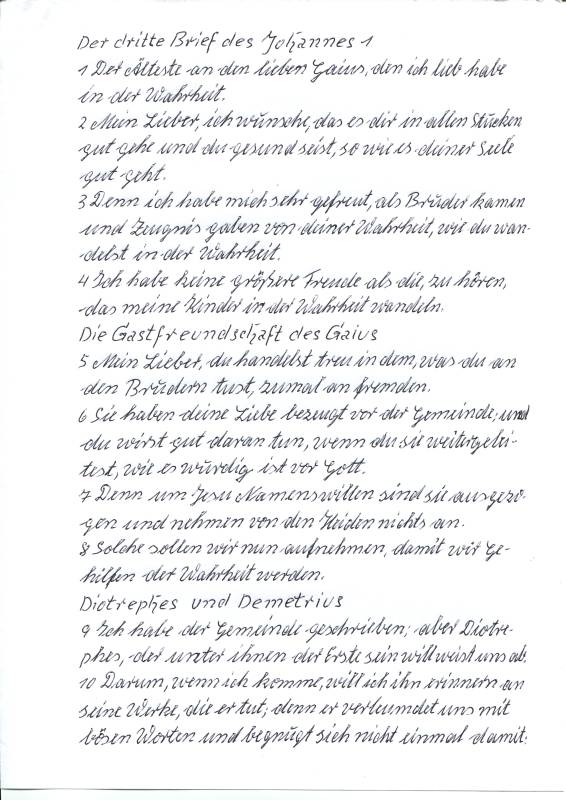 Der dritte Brief des Johannes 1
1 Der Älteste an den lieben Gaius, den ich lieb habe
in der Wahrheit.
2 Mein Lieber, ich wünsche, das es dir in allen Stücken
gut gehe und du gesund seist, so wie es deiner Seele
gut geht.
3 Denn ich habe mich sehr gefreut, als Brüder kamen
und Zeugnis gaben von deiner Wahrheit, wie du wan-
delst in der Wahrheit.
4 Ich habe keine größere Freude als die, zu hören,
das meine Kinder in der Wahrheit wandeln.
Die Gastfreundschaft des Gaius
5 Mein Lieber, du handelst treu in dem, was du an
den Brüdern tust, zumal an fremden.
6 Sie haben deine Liebe bezeugt vor der Gemeinde; und
du wirst gut daran tun, wenn du sie weitergelei-
test, wie es würdig ist vor Gott.
7 Denn um Jesu Namens willen sind sie ausgezo-
gen und nehmen von den Heiden nichts an.
8 Solche sollen wir nun aufnehmen, damit wir Ge-
hilfen der Wahrheit werden.
Diotrephes und Demetrius
9 Ich habe der Gemeinde geschrieben; aber Diotre-
phes, der unter ihnen der Erste sein will weist uns ab.
10 Darum, wenn ich komme, will ich ihn erinnern an
seine Werke, die er tut; denn er verleumdet uns mit
bösen Worten und begnügt sich nicht einmal damit: